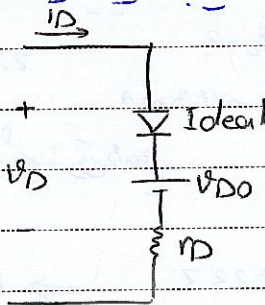 iD
+
Ideal
VD
VD0
-
rD